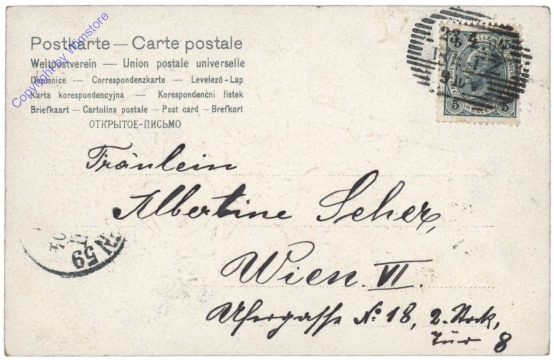 Postkarte — Carte postale
Weltpostverein — Union postale universelle
Dopisnice — Correspondenzkarte — Levelező-Lap
Karta korespondencyjna — Korespondenčni listek
Briefkaart — Cartolina postale — Post card — Brefkort
ОТКРЫТОЕ-ПИСЬМО
Copyright by Wienstore
5 5
Fräulein
Albertine Seher,
Wien VI.
Ufergasse No 18, 2. Stock,
Tür 8
59